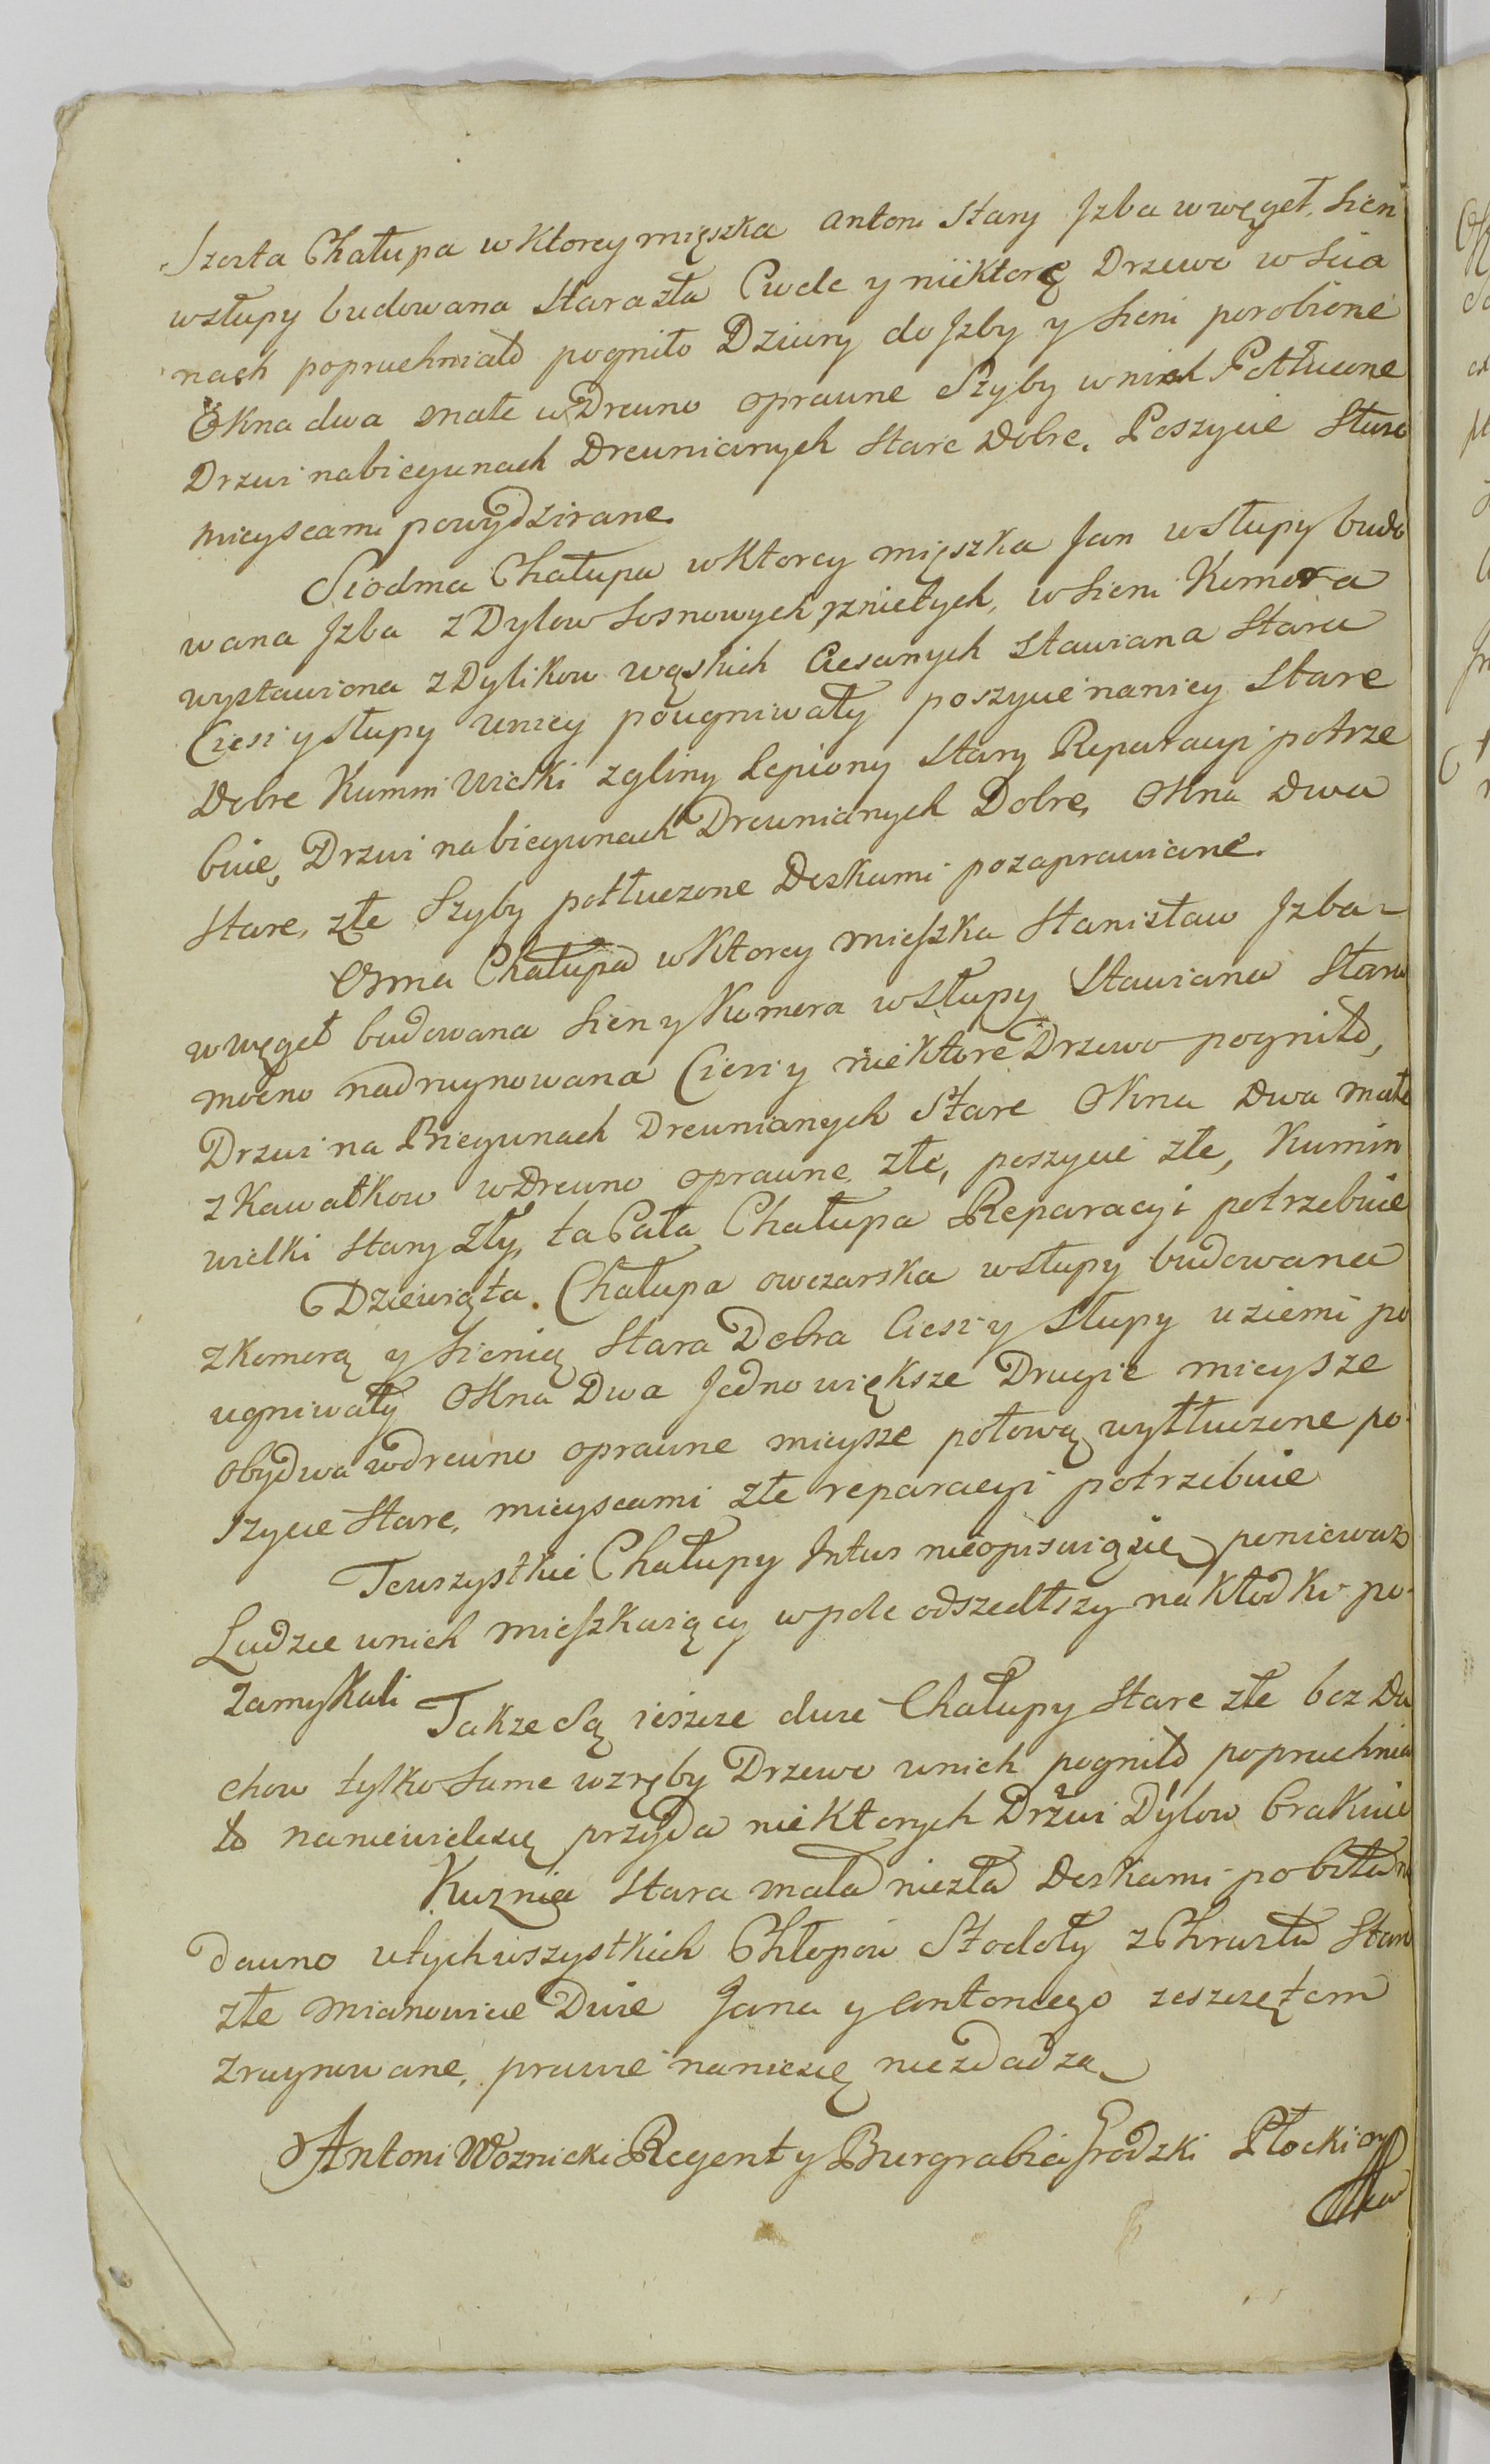 Szosta Chałupa w Ktorey mięszka Antoni Stary Jzba w węgeł, Sień
w słupy budowana Stara zła Cwele y niektorę Drzewo w Scia
nach popruchniało pogniło Dziury do Jzby y Sieni porobione
Okna dwa małe w Drewno oprawne Szyby w nich Potłuczone
Drzwi na biegunach Drewnianych Stare Dobre. Poszycie Stare
mieyscami powydzirane.
Siodma Chałupa w Ktorey mięszka Jan w Słupy budo
wana Jzba z Dylow Sosnowych rznietych, w Sieni Komora
wystawiona z Dylikow wąskich Ciesanych Stawiana Stara
Ciesi y Słupy u niey pougniwały poszycie na niey Stare
Dobre Kumin Wielki z gliny Lepiony Stary Reparacyi potrze
buie, Drzwi na biegunach Drewnianych Dobre, Okna Dwa
Stare, złe Szyby potłuczone Deskami pozaprawiane.
Osma Chałupa w Ktorey mieszka Stanisław Jzba
w węgeł budowana Sien y Komora w Słupy Stawiana Stara
mocno nadruynowana Ciesi y niektore Drzewo pogniło,
Drzwi na Biegunach Drewnianych Stare Okna Dwa małe
z Kawałkow w Drewno oprawne złe, poszycie złe, Kumin
wielki Stary zły, ta Cała Chałupa Reparacyi potrzebuie
Dziewiąta. Chałupa owczarska w słupy budowana
z Komorą y Sienią Stara Dobra Ciesi y Słupy u ziemi po
ugniwały Okna Dwa Jedno większe Drugie mieysze
obydwa w drewno oprawne mieysze połową wytłuczone po
szycie Stare, mieyscami złe reparacyi potrzebuie
Te wszystkie Chałupy Jntus nieopisuią się ponieważ
Ludzie w nich mieszkaiący w pole odszedłszy na Kłodki po
zamykali
Takze Są ieszcze dwie Chałupy Stare złe bez Da
chow tylko Same wzręby Drzewo w nich pogniło popruchnia
ło na niewielesię przyda niektorych Drzwi Dylow brakuie
Kuznia Stara mała niezła Deskami pobita nie
dawno u tych wszystkich Chłopow Stodoły z Chrustu Stare
złe mianowicie Dwie Jana y Antoniego zeszczętem
zruynowane, prawie na nic się niezdadzą
Antoni Woznicki Regent y Burgrabia Grodzki Płocki